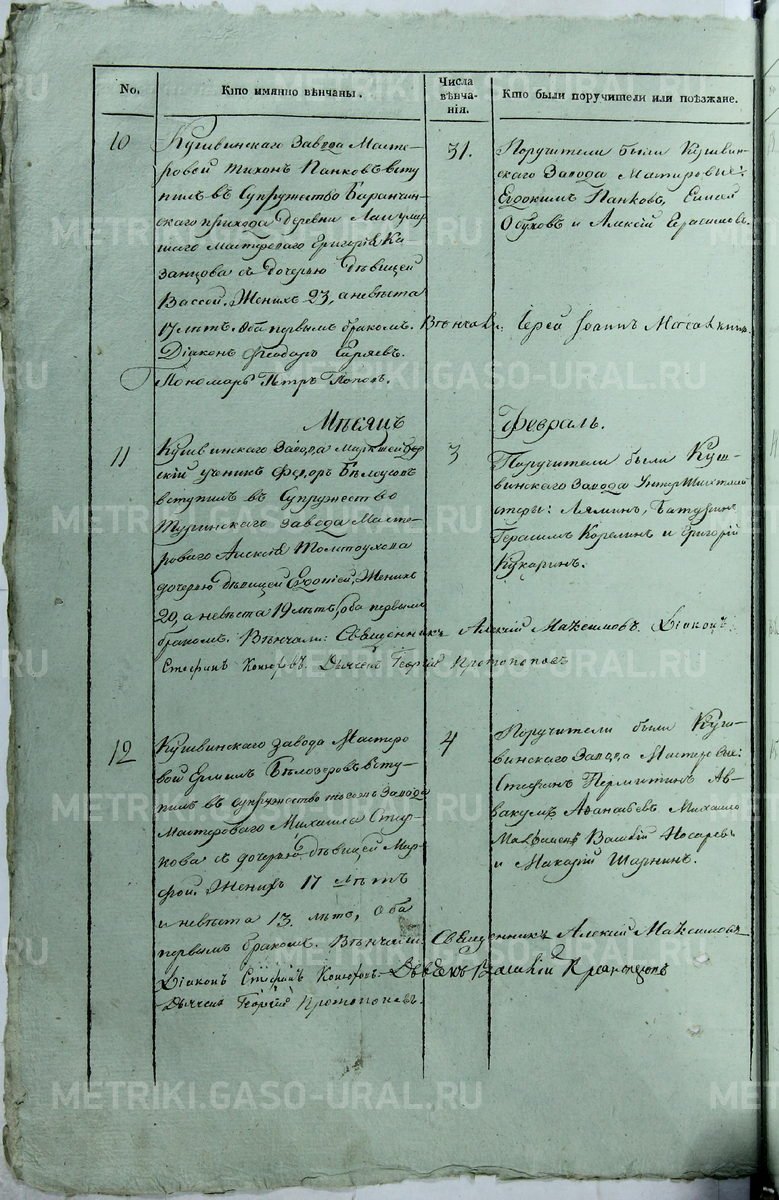 No.
Кто имянно вѣнчаны.
Числа
вѣнча-
нія.
Кто были поручители или поѣзжане.
10
Кушвинскаго Завода Масте-
ровой Тихонъ Панковъ всту
пилъ въ Супружество Баранчин-
скаго прихода деревни
Мастероваго Григорія Ка
занцова съ дочерью дѣвицей
Вассой. Женихъ 23, а невѣста
17 лѣтъ. Оба первымъ бракомъ.
Діаконъ Феодоръ
Пономарь Петръ Поповъ.
31.
Поручители были Кушвин-
скаго Завода Мастеровые:
Евдокимъ Панковъ,
Обуховъ и Алексій Герасимовъ.
Вѣнчалъ: Іерей Іоаннъ
Мѣсяцъ
Февраль.
11
Кушвинскаго Завода Маркшейдер
скій ученикъ Федоръ Бѣлоусовъ
вступилъ въ Супружество
Туринскаго завода Масте-
роваго Алексія Толстоухова
дочерью дѣвицей Женихъ
20, а невѣста 19 лѣтъ, оба первымъ
бракомъ. Вѣнчали: Священникъ Алексій Максимовъ. Діаконъ
Стефанъ Конюровъ. Дьячекъ Георгій Протопоповъ
3
Поручители были Куш-
винскаго Завода Унтер Шихтмей
стеры: Лялинъ, Батуринъ
Герасимъ Корелинъ и Григорій
Кукаринъ.
12
Кушвинскаго завода Мастеро
вой Бѣлозеровъ всту-
пилъ въ супружество тогожъ Завода
Мастероваго Михаила
съ дочерью дѣвицей Мар-
фой. Женихъ 17 лѣтъ
и невѣста 13. лѣтъ, Оба
первымъ бракомъ. Вѣнчали: Священникъ Алексій Максимовъ
Діаконъ Стефанъ Конюровъ
Дьячекъ Георгій Протопоповъ.
4
Поручители были Куш-
винскаго Завода Мастеровые:
Стефанъ Пермитинъ Ав-
вакумъ Аѳанасьевъ Михаило
Василій Носаревъ
и Макарій Шарнинъ.
METRIKI.GASO-URAL.RU